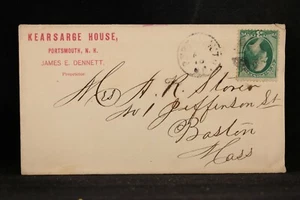 KEARSARGE HOUSE,
PORTSMOUTH, N. H.
JAMES E. DENNETT,
Proprietor.
Mrs A. R. Stover
No 1 Jefferson St
Boston
Mass